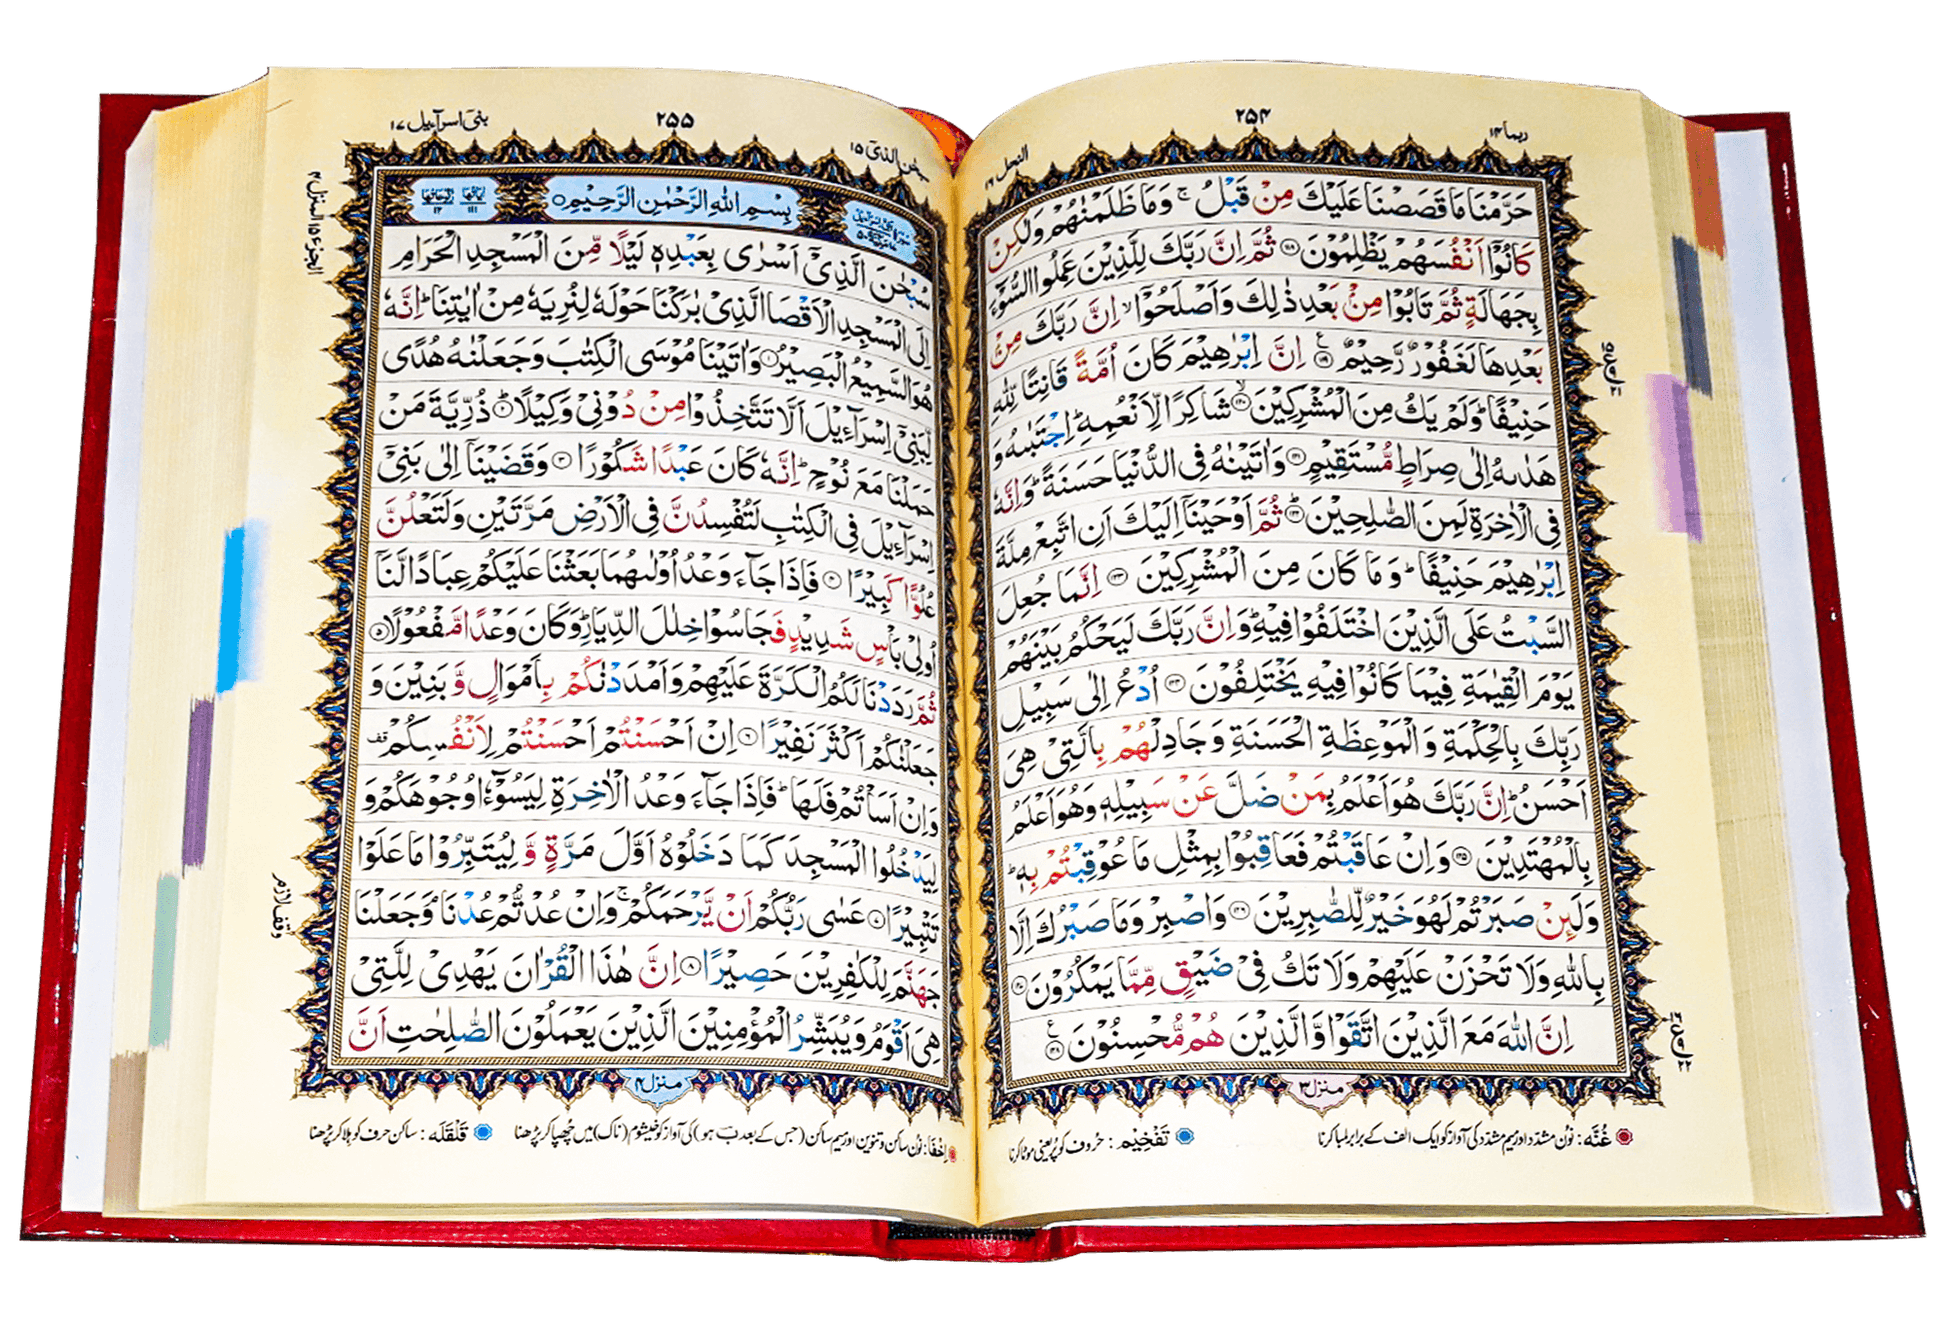 ربما ۱۴
۲۵۴
النحل ۱۶
حَرَّمْنَا مَا قَصَصْنَا عَلَيْكَ مِنْ قَبْلُ ۚ وَمَا ظَلَمْنٰهُمْ وَلٰكِنْ
كَانُوْۤا اَنْفُسَهُمْ يَظْلِمُوْنَ ﴿۱۱۸﴾ ثُمَّ اِنَّ رَبَّكَ لِلَّذِيْنَ عَمِلُوا السُّوْٓءَ
بِجَهَالَةٍ ثُمَّ تَابُوْا مِنْۢ بَعْدِ ذٰلِكَ وَاَصْلَحُوْۤا ۙ اِنَّ رَبَّكَ مِنْۢ
بَعْدِهَا لَغَفُوْرٌ رَّحِيْمٌ ﴿۱۱۹﴾ اِنَّ اِبْرٰهِيْمَ كَانَ اُمَّةً قَانِتًا لِّلّٰهِ
حَنِيْفًا ؕ وَلَمْ يَكُ مِنَ الْمُشْرِكِيْنَ ﴿۱۲۰﴾ شَاكِرًا لِّاَنْعُمِهٖ ؕ اِجْتَبٰىهُ وَ
هَدٰىهُ اِلٰى صِرَاطٍ مُّسْتَقِيْمٍ ﴿۱۲۱﴾ وَاٰتَيْنٰهُ فِى الدُّنْيَا حَسَنَةً ؕ وَاِنَّهٗ
فِى الْاٰخِرَةِ لَمِنَ الصّٰلِحِيْنَ ﴿۱۲۲﴾ ثُمَّ اَوْحَيْنَاۤ اِلَيْكَ اَنِ اتَّبِعْ مِلَّةَ
اِبْرٰهِيْمَ حَنِيْفًا ؕ وَمَا كَانَ مِنَ الْمُشْرِكِيْنَ ﴿۱۲۳﴾ اِنَّمَا جُعِلَ
السَّبْتُ عَلَى الَّذِيْنَ اخْتَلَفُوْا فِيْهِ ؕ وَاِنَّ رَبَّكَ لَيَحْكُمُ بَيْنَهُمْ
يَوْمَ الْقِيٰمَةِ فِيْمَا كَانُوْا فِيْهِ يَخْتَلِفُوْنَ ﴿۱۲۴﴾ اُدْعُ اِلٰى سَبِيْلِ
رَبِّكَ بِالْحِكْمَةِ وَالْمَوْعِظَةِ الْحَسَنَةِ وَجَادِلْهُمْ بِالَّتِىْ هِىَ
اَحْسَنُ ؕ اِنَّ رَبَّكَ هُوَ اَعْلَمُ بِمَنْ ضَلَّ عَنْ سَبِيْلِهٖ وَهُوَ اَعْلَمُ
بِالْمُهْتَدِيْنَ ﴿۱۲۵﴾ وَاِنْ عَاقَبْتُمْ فَعَاقِبُوْا بِمِثْلِ مَا عُوْقِبْتُمْ بِهٖ ؕ
وَلَئِنْ صَبَرْتُمْ لَهُوَ خَيْرٌ لِّلصّٰبِرِيْنَ ﴿۱۲۶﴾ وَاصْبِرْ وَمَا صَبْرُكَ اِلَّا
بِاللّٰهِ وَلَا تَحْزَنْ عَلَيْهِمْ وَلَا تَكُ فِىْ ضَيْقٍ مِّمَّا يَمْكُرُوْنَ ﴿۱۲۷﴾
اِنَّ اللّٰهَ مَعَ الَّذِيْنَ اتَّقَوْا وَّالَّذِيْنَ هُمْ مُّحْسِنُوْنَ ﴿۱۲۸﴾
منزل ۳
غُنَّه: نون مشدّد اور میم مشدّد کی آواز کو ایک الف کے برابر لمبا کرنا
تَفْخِیْم: حروف کو پُر یعنی موٹا کرنا
سبحٰن الذیٓ ۱۵
۲۵۵
بنیٓ اسرآءیل ۱۷
الجزء ۱۵ المنزل ۴
بِسْمِ اللّٰهِ الرَّحْمٰنِ الرَّحِيْمِ
اٰیاتها ۱۱۱
رکوعاتها ۱۲
سُبْحٰنَ الَّذِىْۤ اَسْرٰى بِعَبْدِهٖ لَيْلًا مِّنَ الْمَسْجِدِ الْحَرَامِ
اِلَى الْمَسْجِدِ الْاَقْصَا الَّذِىْ بٰرَكْنَا حَوْلَهٗ لِنُرِيَهٗ مِنْ اٰيٰتِنَا ؕ اِنَّهٗ
هُوَ السَّمِيْعُ الْبَصِيْرُ ﴿۱﴾ وَاٰتَيْنَا مُوْسَى الْكِتٰبَ وَجَعَلْنٰهُ هُدًى
لِّبَنِىْۤ اِسْرَآءِيْلَ اَلَّا تَتَّخِذُوْا مِنْ دُوْنِىْ وَكِيْلًا ؕ ﴿۲﴾ ذُرِّيَّةَ مَنْ
حَمَلْنَا مَعَ نُوْحٍ ؕ اِنَّهٗ كَانَ عَبْدًا شَكُوْرًا ﴿۳﴾ وَقَضَيْنَاۤ اِلٰى بَنِىْۤ
اِسْرَآءِيْلَ فِى الْكِتٰبِ لَتُفْسِدُنَّ فِى الْاَرْضِ مَرَّتَيْنِ وَلَتَعْلُنَّ
عُلُوًّا كَبِيْرًا ﴿۴﴾ فَاِذَا جَآءَ وَعْدُ اُوْلٰىهُمَا بَعَثْنَا عَلَيْكُمْ عِبَادًا لَّنَاۤ
اُولِىْ بَاْسٍ شَدِيْدٍ فَجَاسُوْا خِلٰلَ الدِّيَارِ ؕ وَكَانَ وَعْدًا مَّفْعُوْلًا ﴿۵﴾
ثُمَّ رَدَدْنَا لَكُمُ الْكَرَّةَ عَلَيْهِمْ وَاَمْدَدْنٰكُمْ بِاَمْوَالٍ وَّبَنِيْنَ وَ
جَعَلْنٰكُمْ اَكْثَرَ نَفِيْرًا ﴿۶﴾ اِنْ اَحْسَنْتُمْ اَحْسَنْتُمْ لِاَنْفُسِكُمْ قف
وَاِنْ اَسَاْتُمْ فَلَهَا ؕ فَاِذَا جَآءَ وَعْدُ الْاٰخِرَةِ لِيَسُوْٓءٗا وُجُوْهَكُمْ وَ
لِيَدْخُلُوا الْمَسْجِدَ كَمَا دَخَلُوْهُ اَوَّلَ مَرَّةٍ وَّلِيُتَبِّرُوْا مَا عَلَوْا
تَتْبِيْرًا ﴿۷﴾ عَسٰى رَبُّكُمْ اَنْ يَّرْحَمَكُمْ ۚ وَاِنْ عُدْتُّمْ عُدْنَا ۘ وَجَعَلْنَا
جَهَنَّمَ لِلْكٰفِرِيْنَ حَصِيْرًا ﴿۸﴾ اِنَّ هٰذَا الْقُرْاٰنَ يَهْدِىْ لِلَّتِىْ
هِىَ اَقْوَمُ وَيُبَشِّرُ الْمُؤْمِنِيْنَ الَّذِيْنَ يَعْمَلُوْنَ الصّٰلِحٰتِ اَنَّ
وقف لازم
منزل ۴
اِخْفَا: نون ساکن و تنوین اور میم ساکن (جس کے بعد ب ہو) کی آواز کو خیشوم (ناک) میں چھپا کر پڑھنا
قَلْقَلَه: ساکن حرف کو ہلا کر پڑھنا